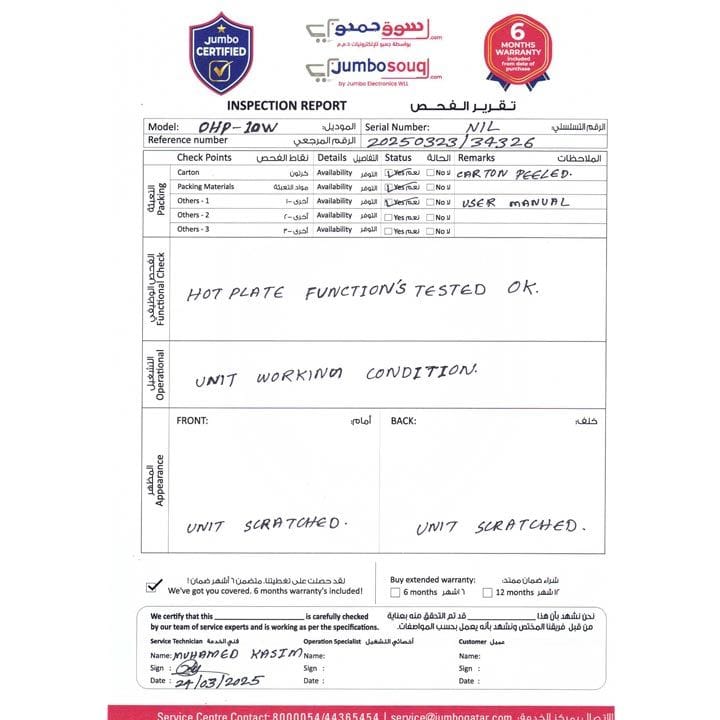 Jumbo
CERTIFIED
سوق جمبو.com
بواسطة جمبو للإلكترونيات ذ.م.م
jumbosouq.com
by Jumbo Electronics WLL
6
MONTHS
WARRANTY
included
from date of
purchase
INSPECTION REPORT تقرير الفحص
Model: OHP-10W الموديل: Serial Number: NIL الرقم التسلسلي:
Reference number الرقم المرجعي 20250323/34326
Check Points نقاط الفحص Details التفاصيل Status الحالة Remarks الملاحظات
التعبئة Packing
Carton كرتون Availability التوفر Yes نعم No لا CARTON PEELED.
Packing Materials مواد التعبئة Availability التوفر Yes نعم No لا
Others - 1 أخرى -١ Availability التوفر Yes نعم No لا USER MANUAL
Others - 2 أخرى -٢ Availability التوفر Yes نعم No لا
Others - 3 أخرى -٣ Availability التوفر Yes نعم No لا
الفحص الوظيفي Functional Check
HOT PLATE FUNCTION'S TESTED OK.
التشغيل Operational
UNIT WORKING CONDITION.
المظهر Appearance
FRONT: أمام: BACK: خلف:
UNIT SCRATCHED. UNIT SCRATCHED.
لقد حصلت على تغطيتنا. متضمن ٦ أشهر ضمان!
We've got you covered. 6 months warranty's included!
Buy extended warranty: شراء ضمان ممتد:
6 months ٦ اشهر 12 months ١٢ شهر
We certify that this ____ is carefully checked
by our team of service experts and is working as per the specifications.
نحن نشهد بأن هذا ____ قد تم التحقق منه بعناية
من قبل فريقنا المختص ونشهد بأنه يعمل بحسب المواصفات.
Service Technician فني الخدمة Operation Specialist أخصائي التشغيل Customer عميل
Name: MUHAMED KASIM Name: Name:
Sign : Sign : Sign :
Date : 24/03/2025 Date : Date :
Service Centre Contact: 8000054/44365454 | service@jumboqatar.com الاتصال بمركز الخدمة: